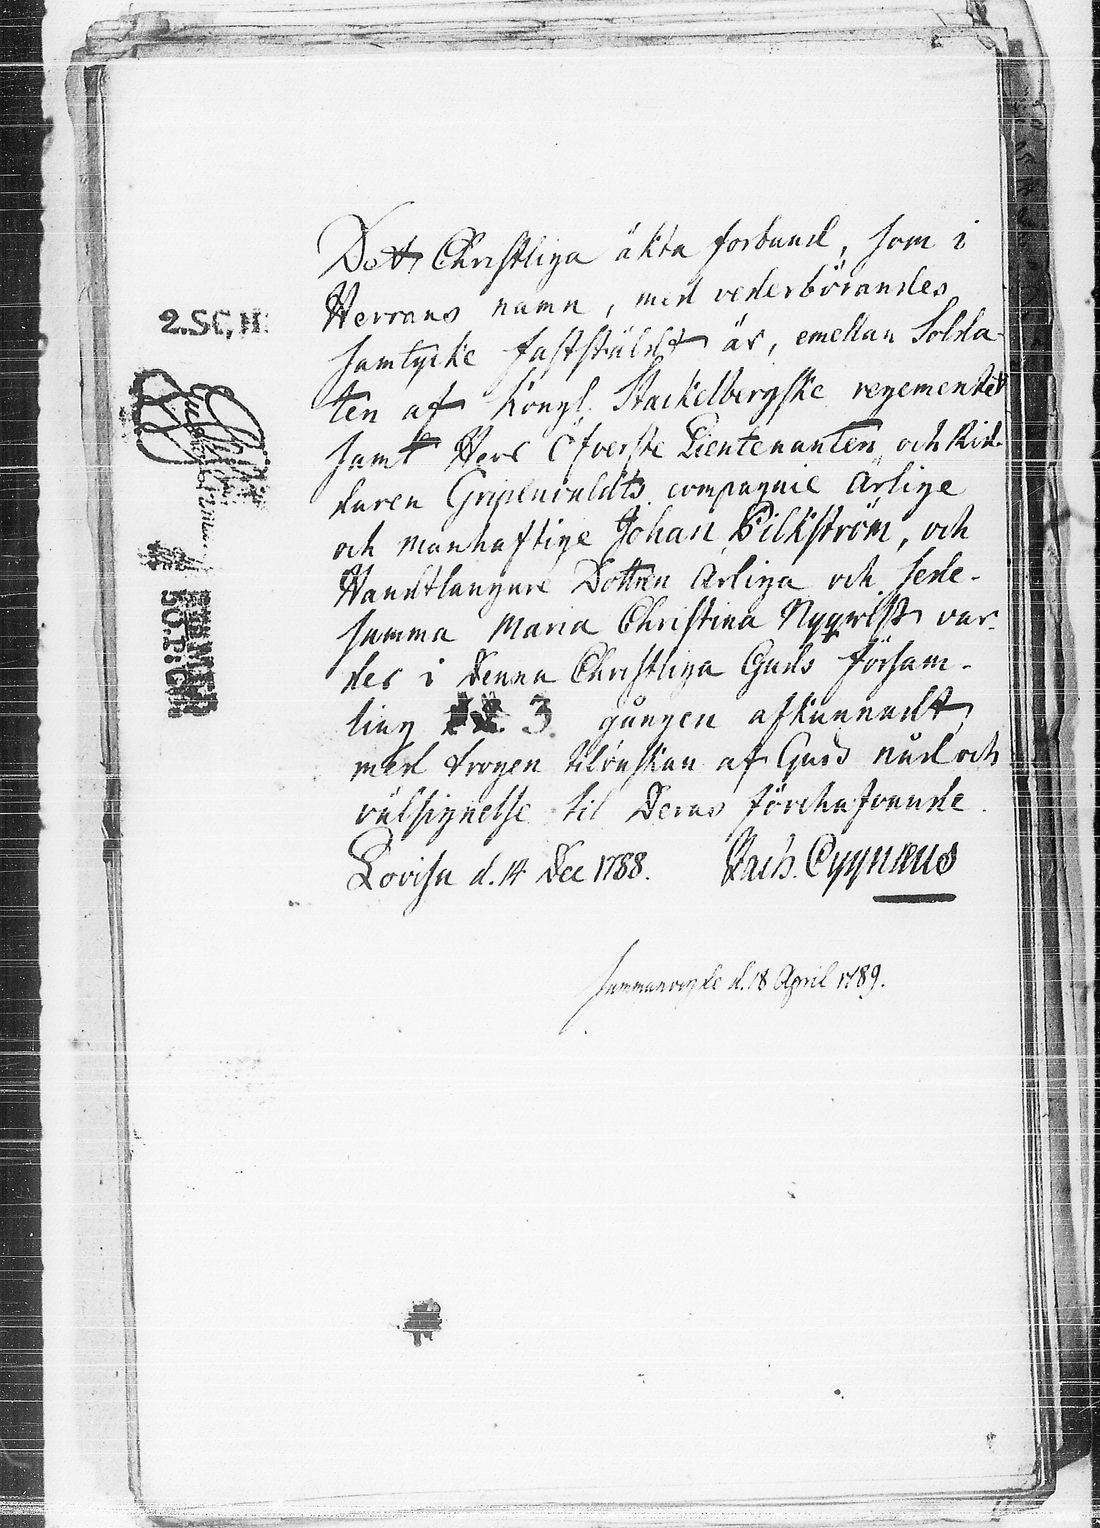 Det Christliga äkta forbund, som i
Herrans namn, med vederbörandes
samtycke fastställdt är, emellan Solda-
ten af Kongl. Stackelbergske regementet
samt Herr Öfverste Lieutenanten och Rid-
daren Gripenvaldts compagnie Ärlige
och manhaftige Johan Silkström, och
Handtlangare Dottren Ärliga och sede-
samma Maria Christina Nyqwist var-
der i denna Christliga Guds försam-
ling 3 gången afkunnadt
med trogen tilönskan af Guds nåd och
välsignelse til Deras förehafvande.
Lovisa d. 14 Dec 1788. Zach. Cygnæus
Sammanvigde d. 18 April 1789.
2. SC. H: